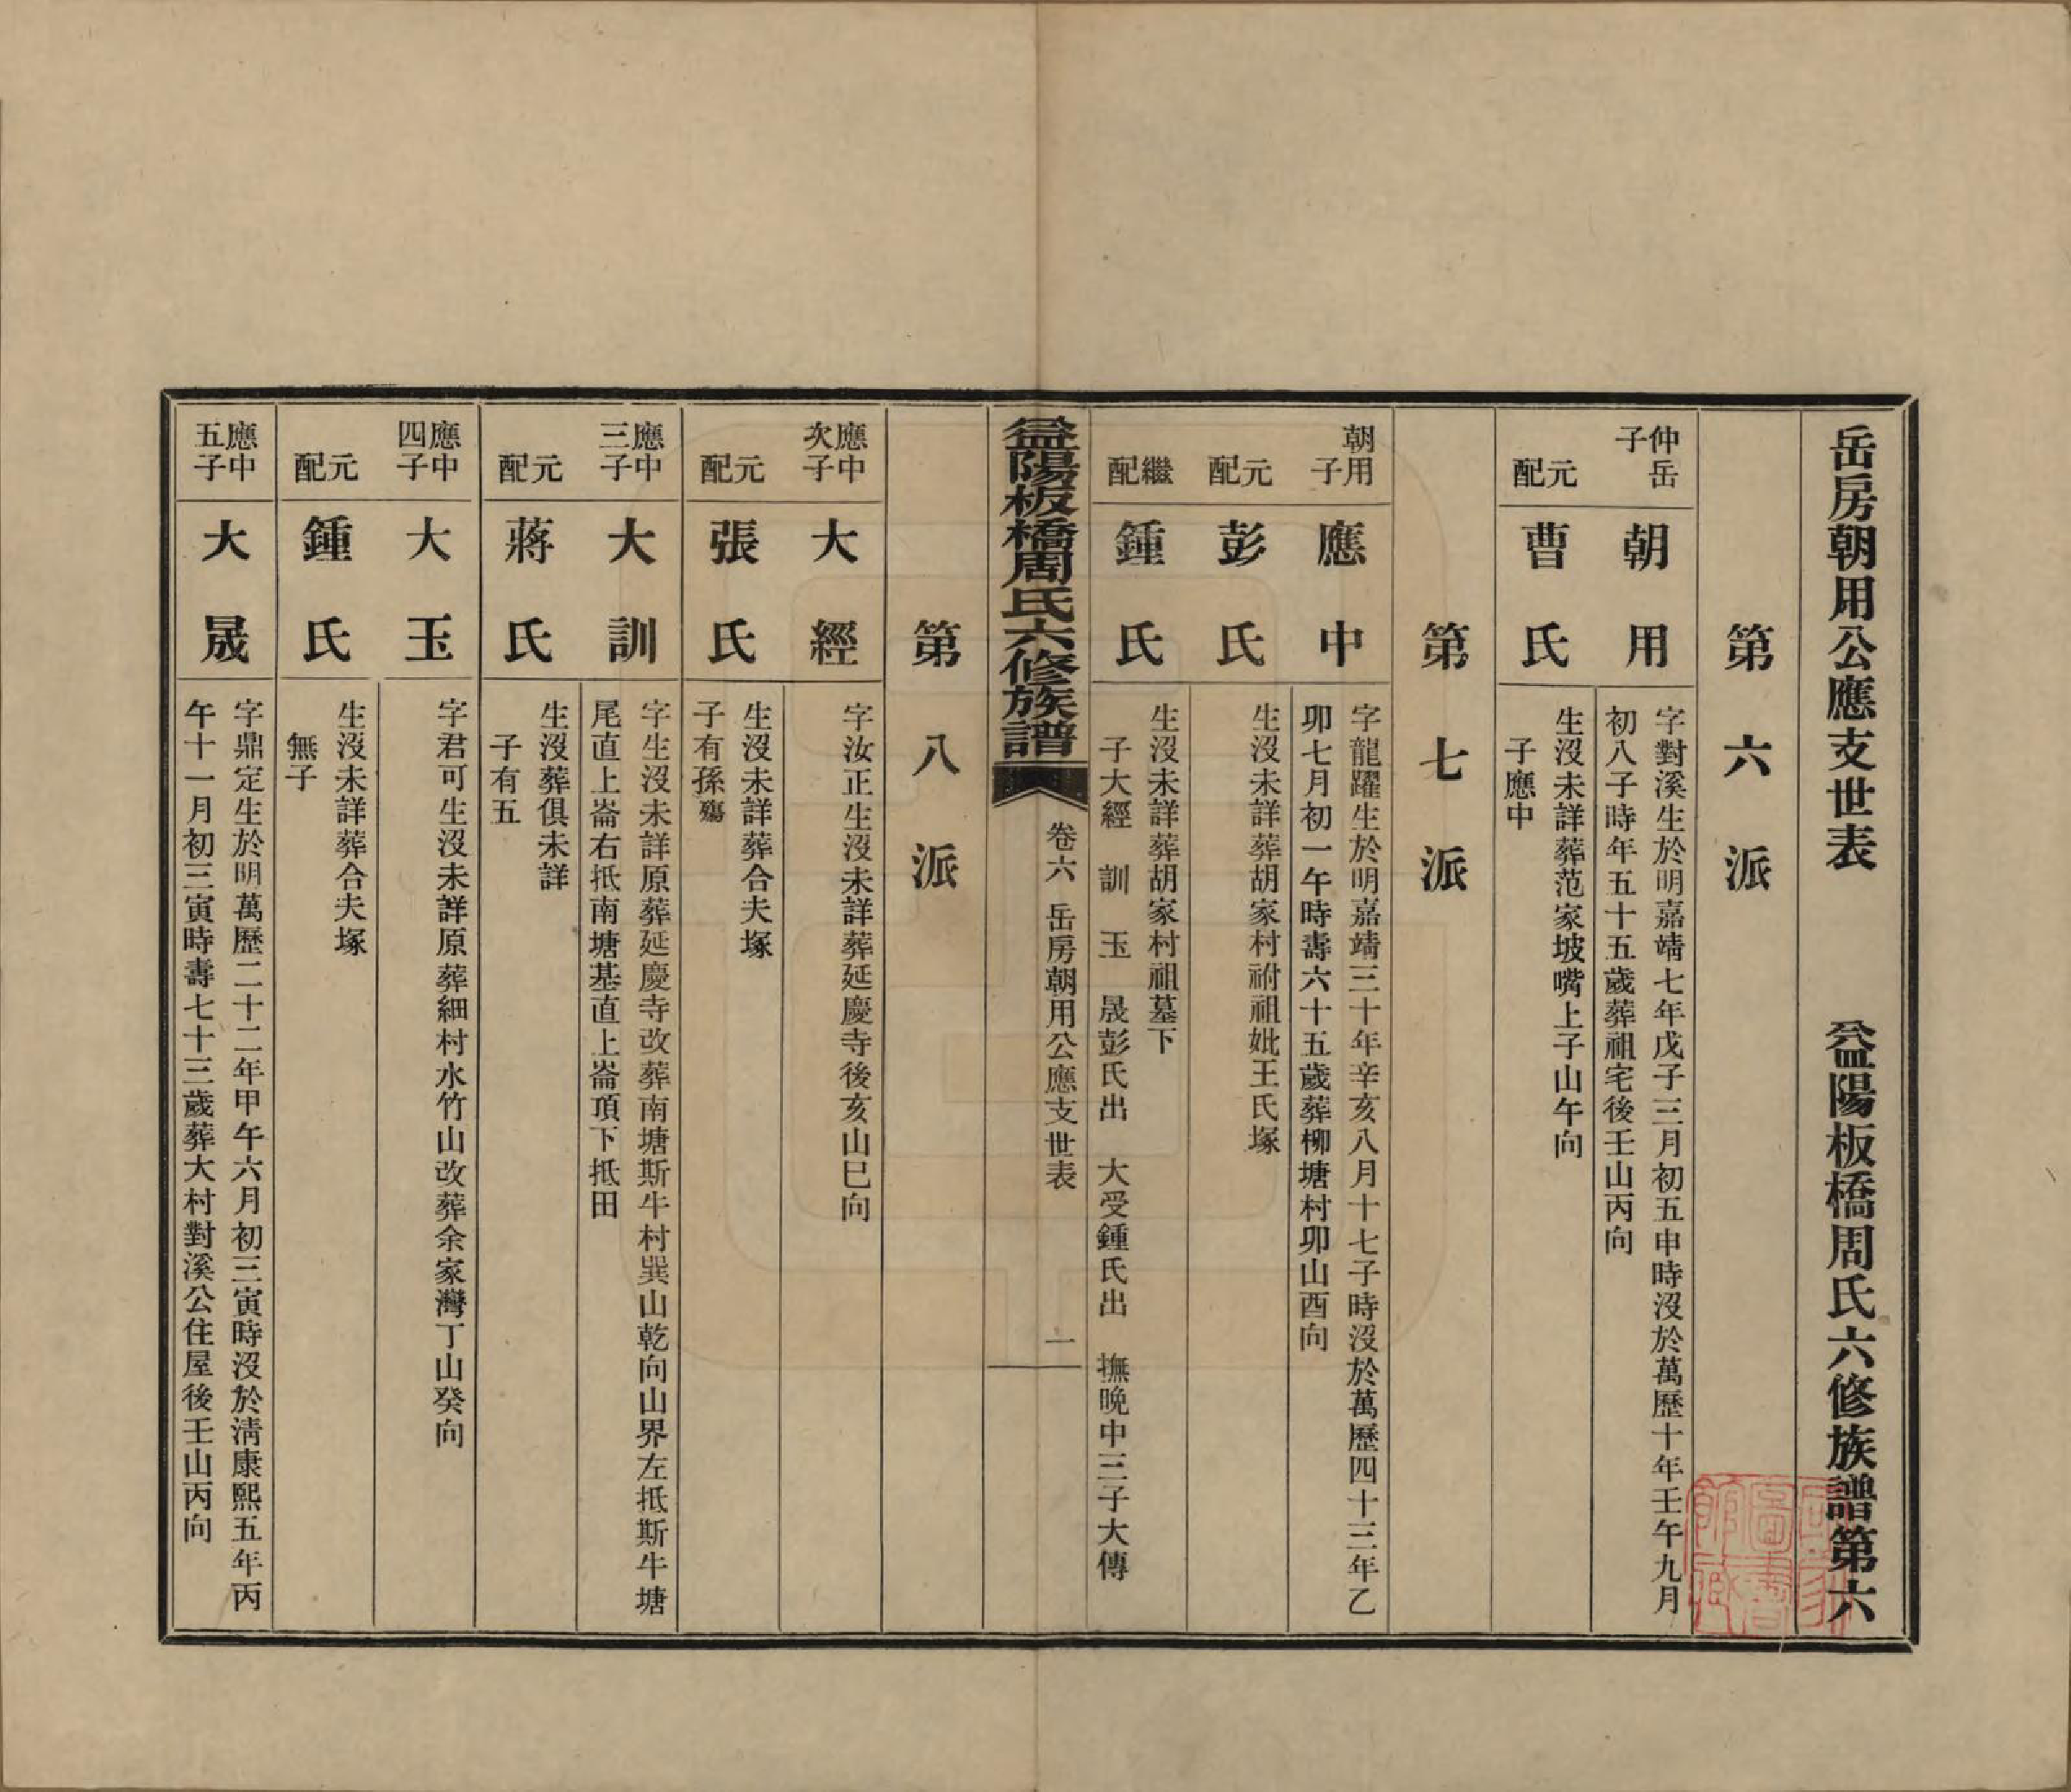 岳房朝用公應支世表　益陽板橋周氏六修族譜第六
第六派
仲岳子
朝用
字對溪生於明嘉靖七年戊子三月初五申時沒於萬歷十年壬午九月
初八子時年五十五歲葬祖宅後壬山丙向
元配
曹氏
生沒未詳葬范家坡嘴上子山午向
子應中
第七派
朝用子
應中
字龍躍生於明嘉靖三十年辛亥八月十七子時沒於萬歷四十三年乙
卯七月初一午時壽六十五歲葬柳塘村卯山酉向
元配
彭氏
生沒未詳葬胡家村祔祖妣王氏塚
繼配
鍾氏
生沒未詳葬胡家村祖墓下
子大經　訓　玉　晟彭氏出　大受鍾氏出　撫晚中三子大傳
益陽板橋周氏六修族譜
卷六　岳房朝用公應支世表　一
第八派
應中次子
大經
字汝正生沒未詳葬延慶寺後亥山巳向
元配
張氏
生沒未詳葬合夫塚
子有孫殤
應中三子
大訓
字生沒未詳原葬延慶寺改葬南塘斯牛村巽山乾向山界左抵斯牛塘
尾直上崙右抵南塘基直上崙項下抵田
元配
蔣氏
生沒葬俱未詳
子有五
應中四子
大玉
字君可生沒未詳原葬細村水竹山改葬余家灣丁山癸向
元配
鍾氏
生沒未詳葬合夫塚
無子
應中五子
大晟
字鼎定生於明萬歷二十二年甲午六月初三寅時沒於淸康熙五年丙
午十一月初三寅時壽七十三歲葬大村對溪公住屋後壬山丙向